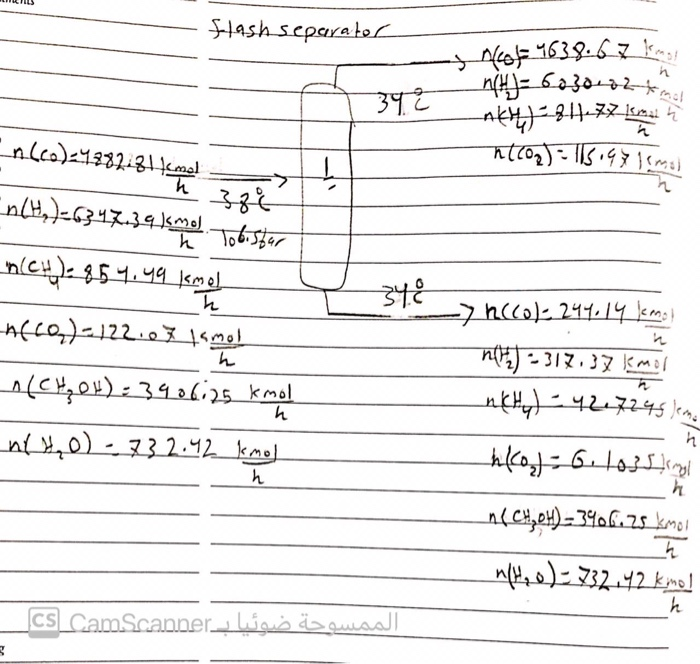 flash separator
n(CO)=4638.67 kmol/h
n(H₂)=6030.02 kmol/h
n(CH₄)=811.77 kmol/h
n(CO₂)=115.97 kmol/h
34°C
1
n(CO)=4882.81 kmol/h
n(H₂)=6347.39 kmol/h
n(CH₄)=854.49 kmol/h
n(CO₂)=122.07 kmol/h
n(CH₃OH)=3906.25 kmol/h
n(H₂O)=732.42 kmol/h
38°C
106.5bar
34°C
n(CO)=244.14 kmol/h
n(H₂)=317.37 kmol/h
n(CH₄)=42.7245 kmol/h
n(CO₂)=6.1035 kmol/h
n(CH₃OH)=3906.25 kmol/h
n(H₂O)=732.42 kmol/h
CS CamScanner الممسوحة ضوئيا بـ